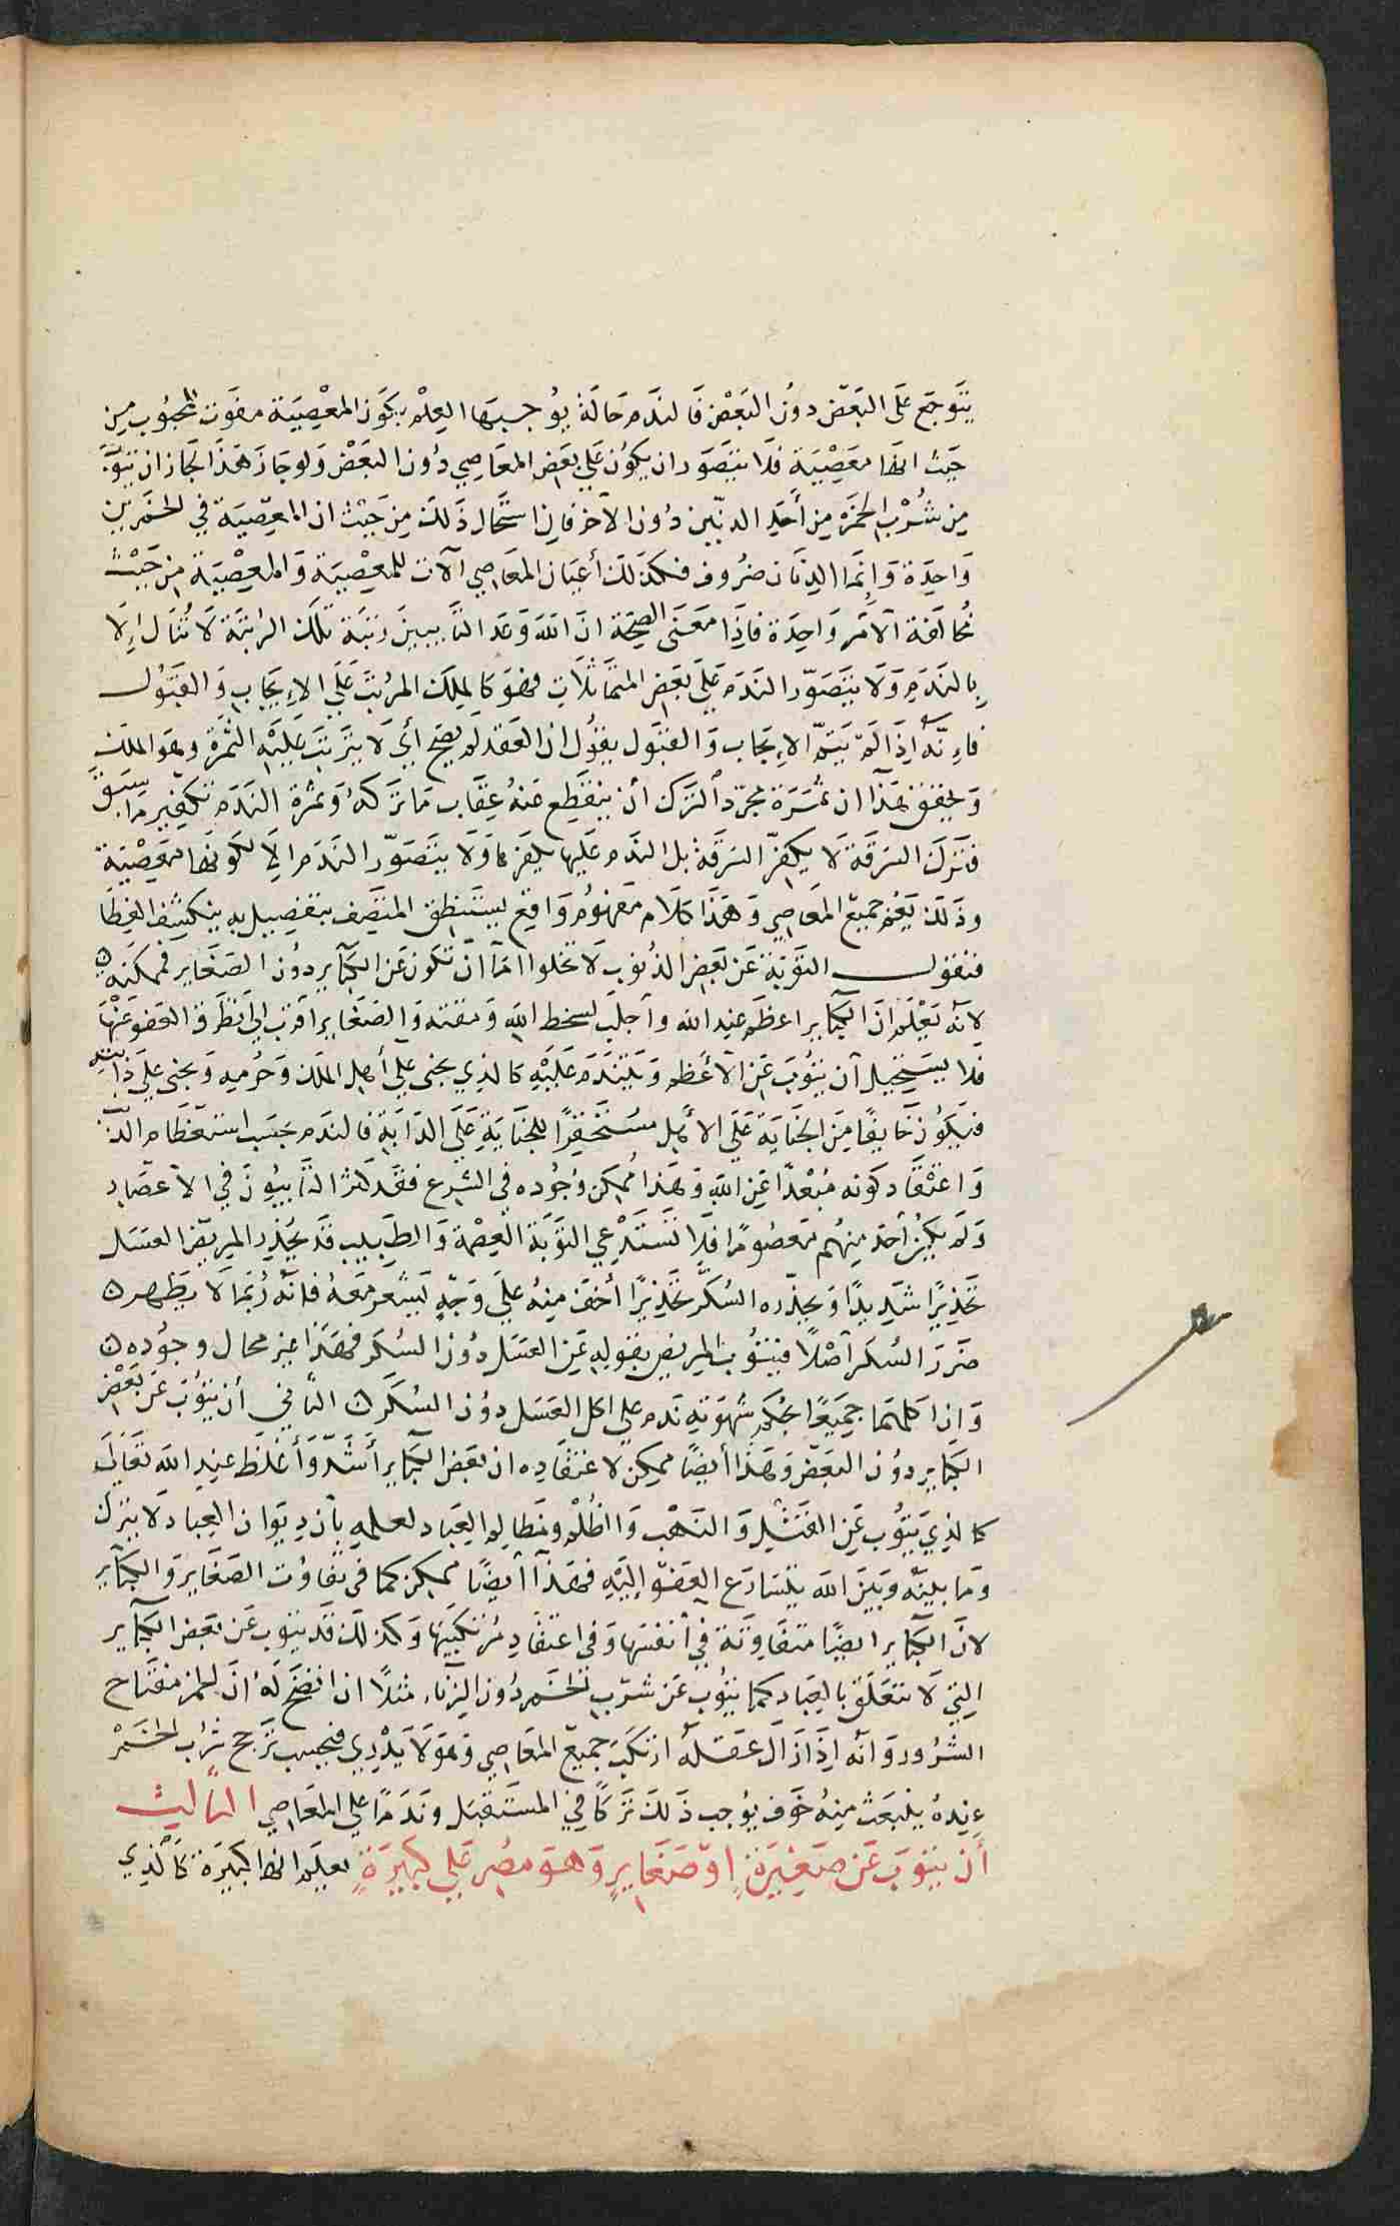 يتوجع على البعض دون البعض فالندم حالة يوجبها العلم بكون المعصية مفوت المحبوب من
حيث انها معصية فلا يتصور ان يكون على بعض المعاصي دون البعض ولو جاز هذا لجاز ان يتوب
من شرب الخمر من أحد الدنين دون الآخر فان استحال ذلك من حيث ان المعصية في الخمرين
واحدة وإنما الدنان ظروف فكذلك أعيان المعاصي آلات للمعصية والمعصية من حيث
مخالفة الأمر واحدة فاذا معنى الصحة ان الله وعد التايبين رتبة تلك الرتبة لا تنال إلا
بالندم ولا يتصور الندم على بعض المتماثلات فهو كالملك المرتب على الإيجاب والقبول
فإنه إذا لم يتم الإيجاب والقبول يقول ان العقد لم يصح أي لا يترتب عليه الثمرة وهو الملك
وتحقيق هذا ان ثمرة مجرد الترك أن ينقطع عنه عقاب ما تركه وثمرة الندم تكفير ما سبق
فترك السرقة لا يكفر السرقة بل الندم عليها يكفرها ولا يتصور الندم الا لكونها معصية
وذلك يعم جميع المعاصي وهذا كلام مفهوم واقع يستنطق المنصف بتفصيل به ينكشف الغطا
فنقول التوبة عن بعض الذنوب لا تخلوا اما ان تكون عن الكبآير دون الصغاير فممكنه
لانه تعلم ان الكبآير اعظم عند الله وأجلب لسخط الله ومقته والصغاير اقرب الى تطرق العفو عنها
فلا يستحيل أن يتوب عن الأعظم ويتندم عليه كالذي يجنى على أهل الملك وحرمه ويجنى على دابته
فيكون خايفا من الجناية على الأهل مستحقرا للجناية على الدابة فالندم بحسب استعظام الذنب
واعتقاد كونه مبعدا عن الله وهذا ممكن وجوده في الشرع فقد كثر التايبون في الأعصار
ولم يكن أحد منهم معصوما فلا تستدعي التوبة العصمة والطبيب قد يحذر المريض العسل
تحذيرا شديدا ويحذره السكر تحذيرا أخف منه على وجه يشعر معه فانه ربما لا يظهر
ضرر السكر أصلا فيتوب المريض بقوله عن العسل دون السكر فهذا غير محال وجوده
وان اكلهما جميعا بحكم شهوته ندم على اكل العسل دون السكر الثاني أن يتوب عن بعض
الكباير دون البعض وهذا أيضا ممكن لاعتقاده ان بعض الكباير أشد وأغلظ عند الله تعالى
كالذي يتوب عن القتل والنهب والظلم ومظالم العباد لعلمه بأن ديوان العباد لا يترك
وما بينه وبين الله يتسارع العفو إليه فهذا أيضا ممكن كما في تفاوت الصغاير والكبآير
لان الكبآير ايضا متفاوتة في أنفسها وفي اعتقاد مرتكبها وكذلك قد يتوب عن بعض الكبآير
التي لا تتعلق بالعباد كما يتوب عن شرب الخمر دون الزناء مثلا ان اتضح له ان الخمر مفتاح
الشرور وانه إذا زال عقله ارتكب جميع المعاصي وهو لا يدري فبحسب ترجح شرب الخمر
عنده ينبعث منه خوف يوجب ذلك تركا في المستقبل وندما على المعاصي الثالث
أن يتوب عن صغيرة او صغاير وهو مصر على كبيرة يعلم انها كبيرة كالذي